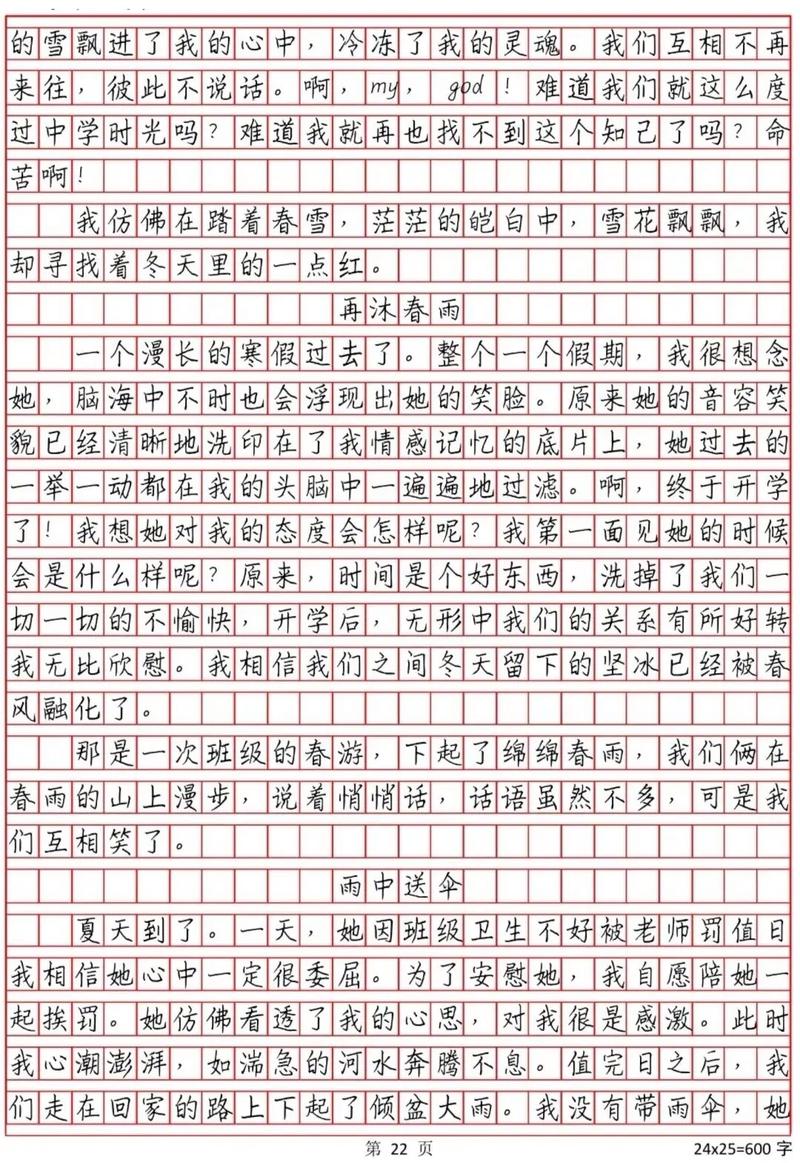 的雪飘进了我的心中，冷冻了我的灵魂。我们互相不再
来往，彼此不说话。啊，my，god！难道我们就这么度
过中学时光吗？难道我就再也找不到这个知己了吗？命
苦啊！
我仿佛在踏着春雪，茫茫的皑白中，雪花飘飘，我
却寻找着冬天里的一点红。
再沐春雨
一个漫长的寒假过去了。整个一个假期，我很想念
她，脑海中不时也会浮现出她的笑脸。原来她的音容笑
貌已经清晰地洗印在了我情感记忆的底片上，她过去的
一举一动都在我的头脑中一遍遍地过滤。啊，终于开学
了！我想她对我的态度会怎样呢？我第一面见她的时候
会是什么样呢？原来，时间是个好东西，洗掉了我们一
切一切的不愉快，开学后，无形中我们的关系有所好转
我无比欣慰。我相信我们之间冬天留下的坚冰已经被春
风融化了。
那是一次班级的春游，下起了绵绵春雨，我们俩在
春雨的山上漫步，说着悄悄话，话语虽然不多，可是我
们互相笑了。
雨中送伞
夏天到了。一天，她因班级卫生不好被老师罚值日
我相信她心中一定很委屈。为了安慰她，我自愿陪她一
起挨罚。她仿佛看透了我的心思，对我很是感激。此时
我心潮澎湃，如湍急的河水奔腾不息。值完日之后，我
们走在回家的路上下起了倾盆大雨。我没有带雨伞，她
第 22 页 24x25=600 字